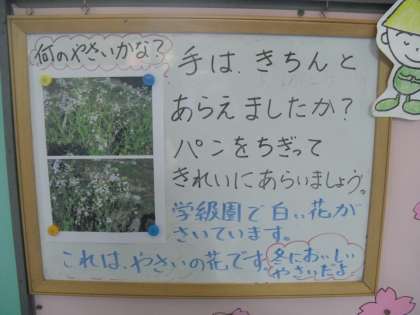 何のやさいかな?
手は、きちんと
あらえましたか?
パンをちぎって
きれいにあらいましょう。
学級園で白い花が
さいています。
これは、やさいの花です。
冬においしい
やさいだよ